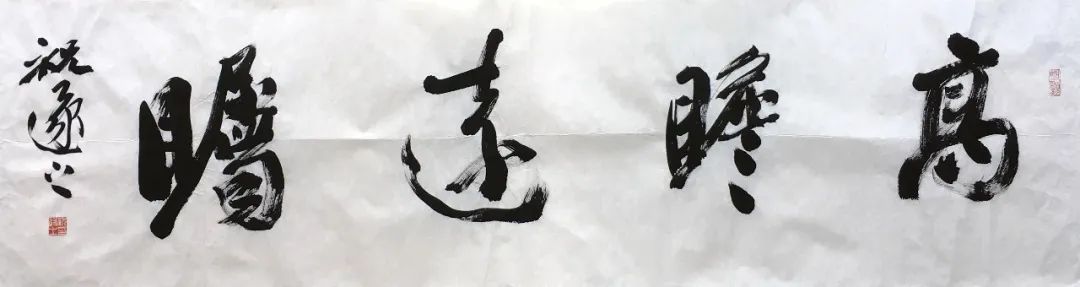 高瞻远瞩
祝遂之